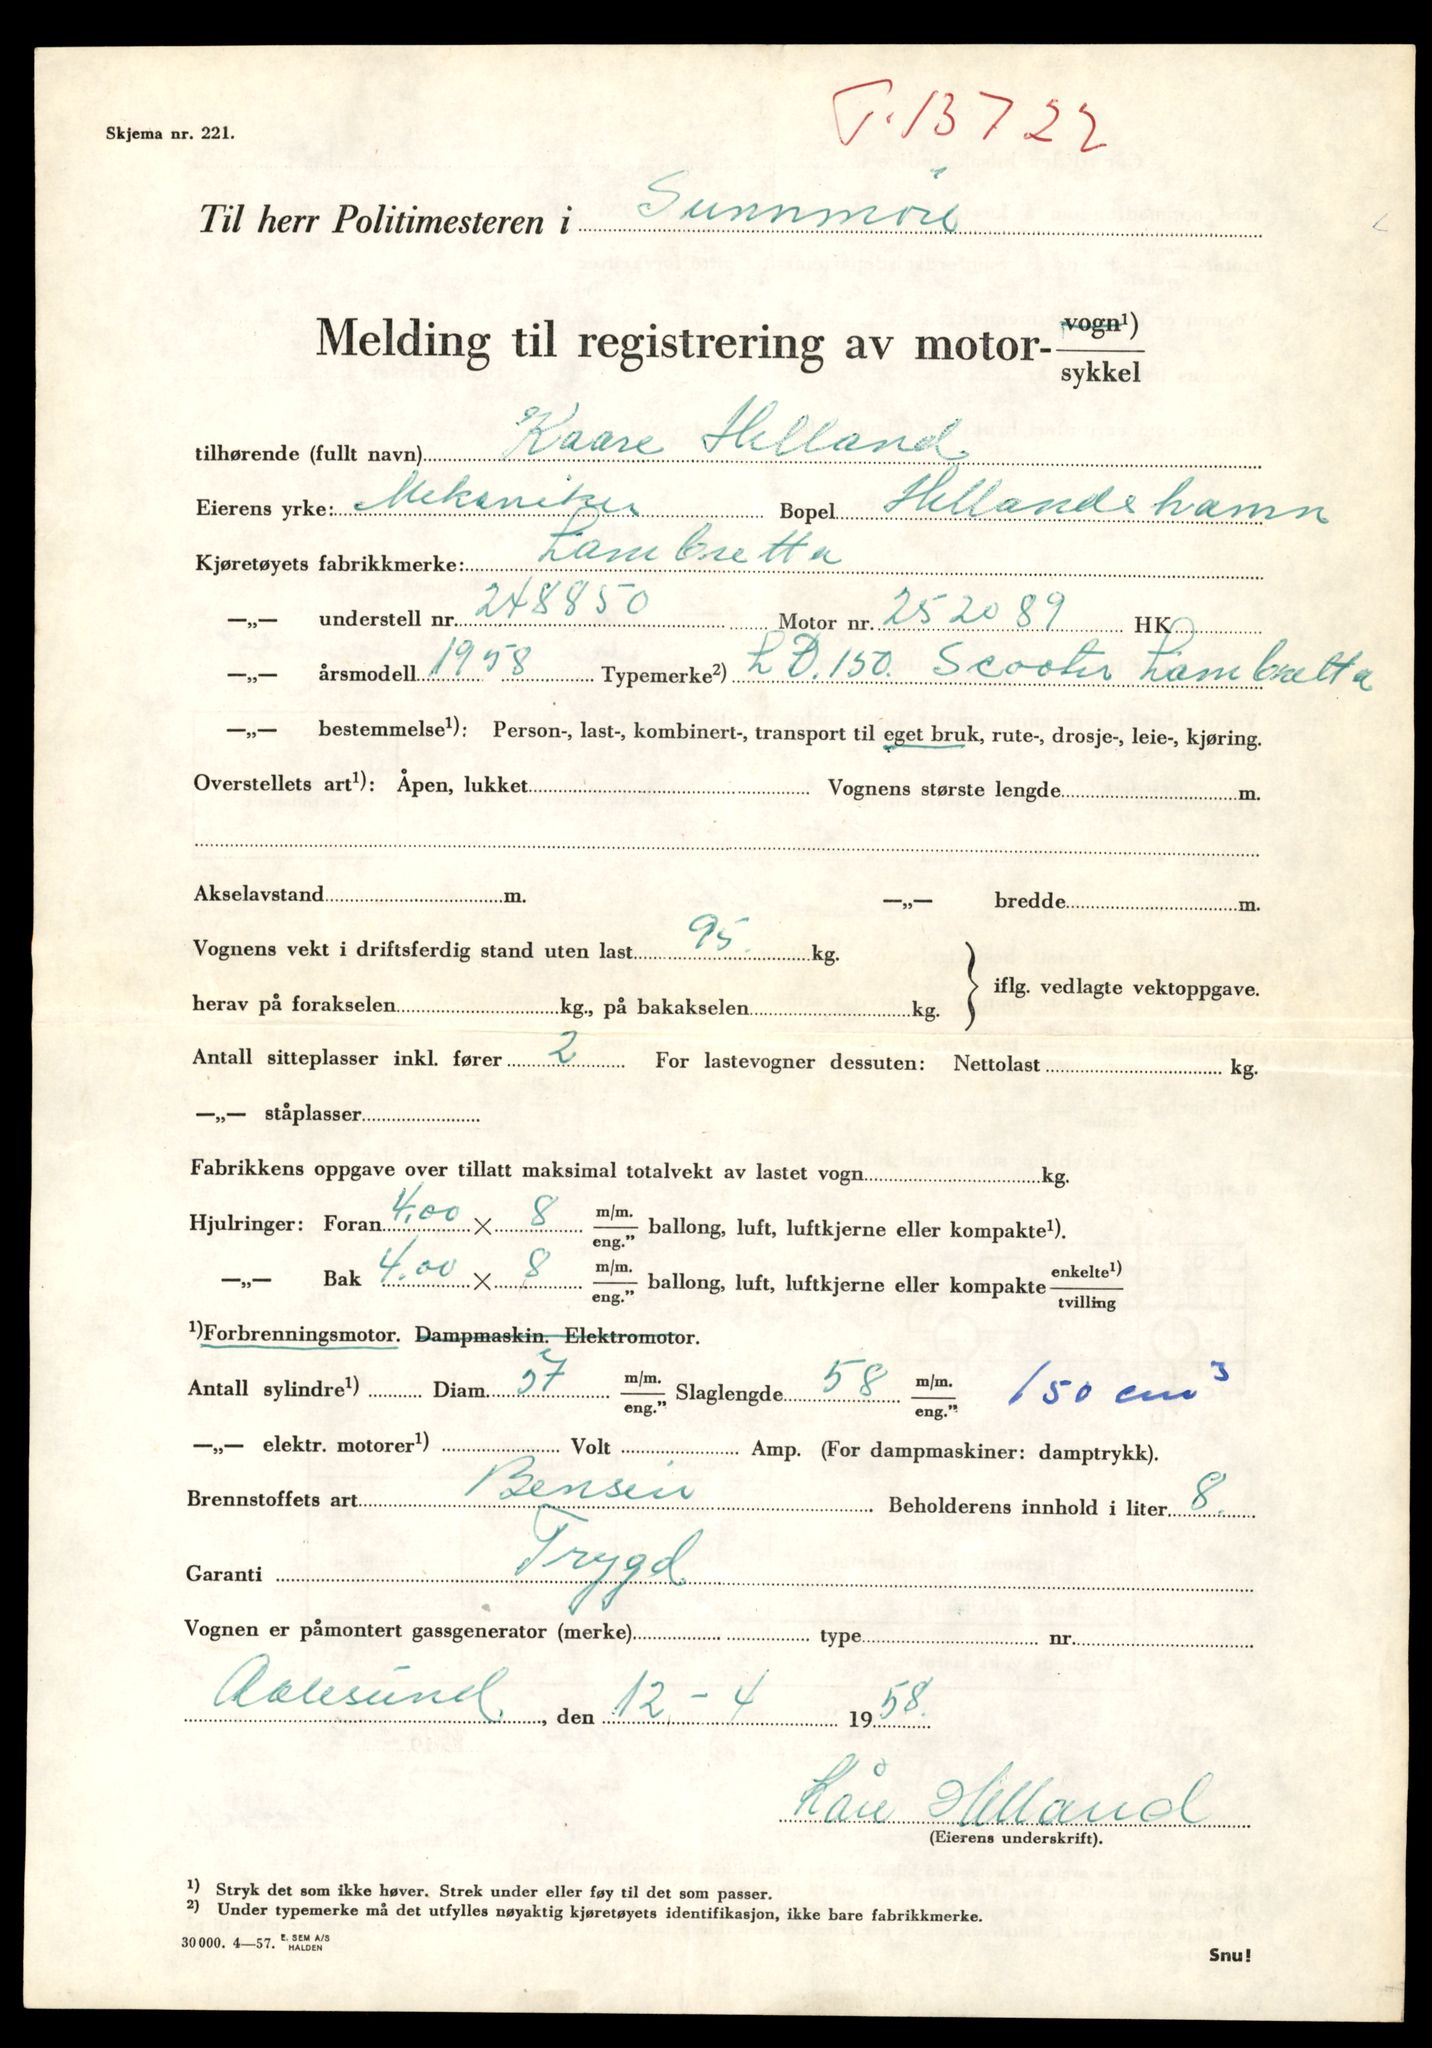 T. 13722
Skjema nr. 221.
Til herr Politimesteren i Sunnmöre
Melding til registrering av motor- vogn¹)
sykkel
tilhørende (fullt navn) Kaare Helland
Eierens yrke: Mekaniker Bopel Hellandshamn
Kjøretøyets fabrikkmerke: Lambretta
—„— understell nr. 248850 Motor nr. 252089 HK
—„— årsmodell 1958 Typemerke²) L D. 150. Scooter Lambretta
—„— bestemmelse¹): Person-, last-, kombinert-, transport til eget bruk, rute-, drosje-, leie-, kjøring.
Overstellets art¹): Åpen, lukket Vognens største lengde m.
Akselavstand m. —„— bredde m.
Vognens vekt i driftsferdig stand uten last 95. kg.
iflg. vedlagte vektoppgave.
herav på forakselen kg., på bakakselen kg.
Antall sitteplasser inkl. fører 2 For lastevogner dessuten: Nettolast kg.
—„— ståplasser
Fabrikkens oppgave over tillatt maksimal totalvekt av lastet vogn kg.
Hjulringer: Foran 4.00 × 8 m/m. eng.” ballong, luft, luftkjerne eller kompakte¹).
—„— Bak 4.00 × 8 m/m. eng.” ballong, luft, luftkjerne eller kompakte enkelte¹) tvilling
¹)Forbrenningsmotor. Dampmaskin. Elektromotor.
Antall sylindre¹) Diam. 57 m/m. eng.” Slaglengde 58 m/m. eng.” 150 cm³
—„— elektr. motorer¹) Volt Amp. (For dampmaskiner: damptrykk).
Brennstoffets art Bensin Beholderens innhold i liter 8.
Garanti Trygd
Vognen er påmontert gassgenerator (merke) type nr.
Aalesund, den 12 - 4 1958.
Kåre Helland
(Eierens underskrift).
¹) Stryk det som ikke høver. Strek under eller føy til det som passer.
²) Under typemerke må det utfylles nøyaktig kjøretøyets identifikasjon, ikke bare fabrikkmerke.
30 000. 4—57. E. SEM A/S HALDEN
Snu!